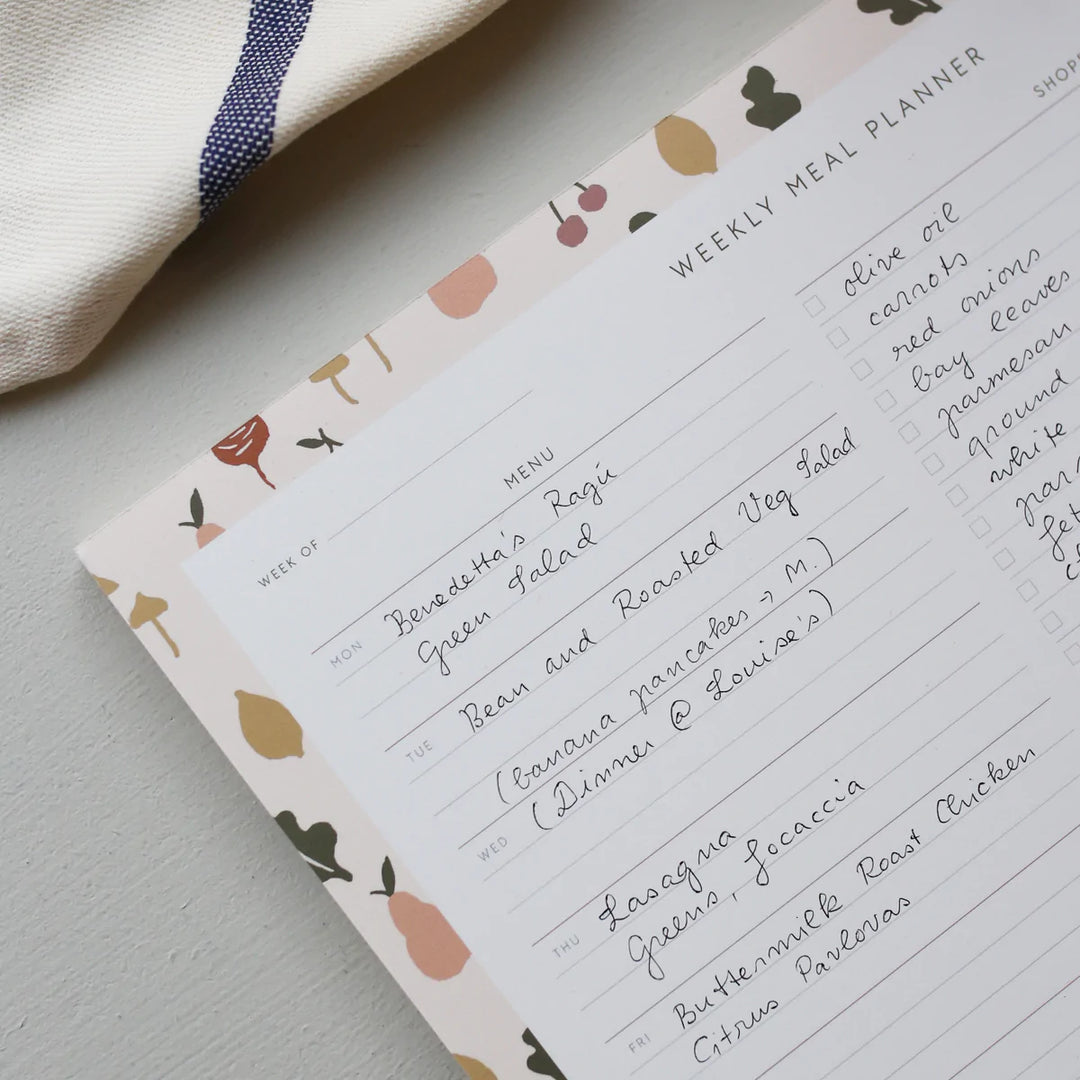 WEEKLY MEAL PLANNER
WEEK OF
MENU
MON Benedetta's Ragú
Green Salad
TUE Bean and Roasted Veg Salad
(banana pancakes → M.)
WED (Dinner @ Louise's)
THU Lasagna
Greens, focaccia
FRI Buttermilk Roast Chicken
Citrus Pavlovas
olive oil
carrots
red onions
bay leaves
parmesan
ground
white